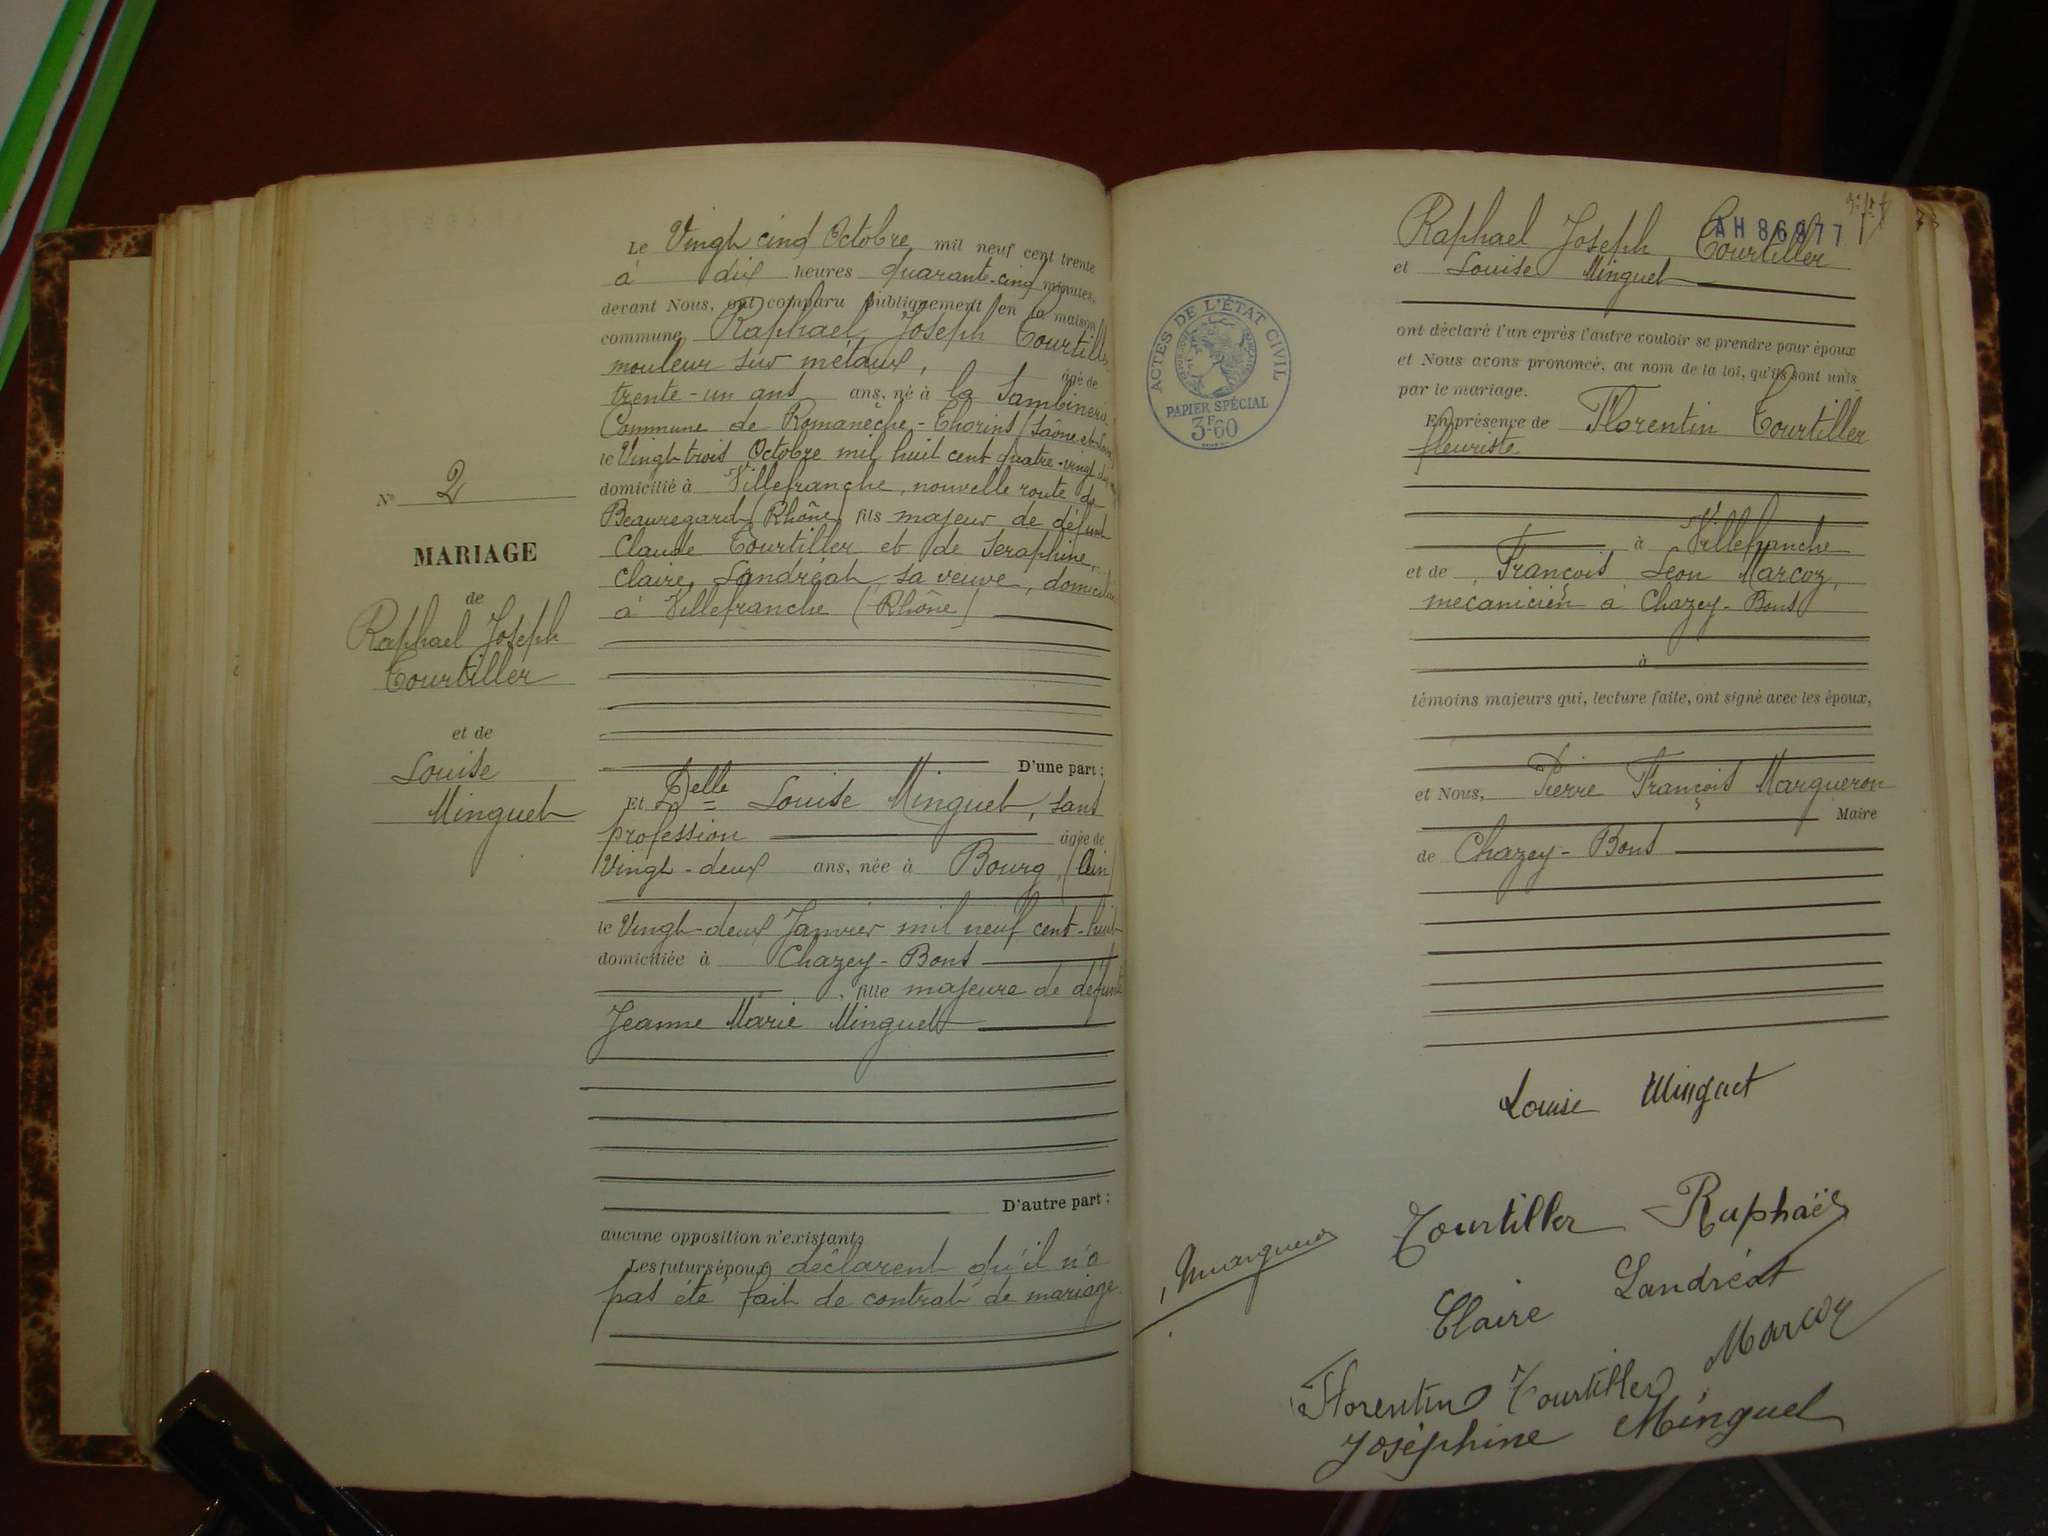 N° 2
MARIAGE
de
Raphael Joseph
Tourtiller
et de
Louise
Minguet
Le Vingt cinq Octobre mil neuf cent trente
à dix heures quarante-cinq minutes,
devant Nous, ont comparu publiquement en la maison
commune Raphael Joseph Tourtiller
mouleur sur métaux, âgé de
trente-un ans ans, né à la
Commune de Romanèche-Thorins (Saône-et-Loire)
le Vingt trois Octobre mil huit cent quatre-vingt
domicilié à Villefranche, nouvelle route de
Beauregard (Rhône) fils majeur de défunt
Claude Tourtiller et de Seraphine,
Claire, Landréat, sa veuve, domiciliée
à Villefranche (Rhône)
D'une part;
Et Delle Louise Minguet, sans
profession âgée de
Vingt-deux ans, née à Bourg (Ain)
le Vingt-deux Janvier mil neuf cent-huit
domiciliée à Chazey-Bons
, fille majeure de défunte
Jeanne Marie Minguet
D'autre part;
aucune opposition n'existant
Les futurs époux déclarent qu'il n'a
pas été fait de contrat de mariage.
AH 86977
Raphael Joseph Tourtiller
et Louise Minguet
ACTES DE L'ÉTAT CIVIL
PAPIER SPÉCIAL
3F.60
ont déclaré l'un après l'autre vouloir se prendre pour époux
et Nous avons prononcé, au nom de la loi, qu'ils sont unis
par le mariage.
En présence de Florentin Tourtiller
fleuriste
à Villefranche
et de François Léon Marcoz,
mécanicien à Chazey-Bons
à
témoins majeurs qui, lecture faite, ont signé avec les époux,
et Nous, Pierre François Margueron
Maire
de Chazey-Bons
Louise Minguet
Tourtiller Raphaël
Margueron
Claire Landréat
Marcoz
Florentin Tourtiller
Joséphine Minguet